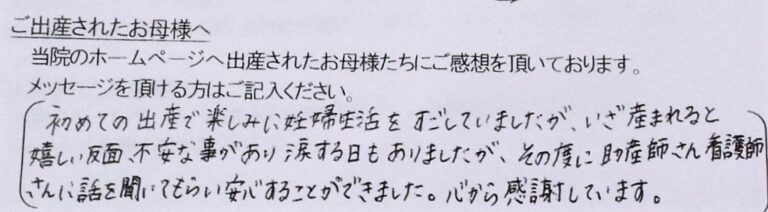 ご出産されたお母様へ
当院のホームページへ出産されたお母様たちにご感想を頂いております。
メッセージを頂ける方はご記入ください。
初めての出産で楽しみに妊婦生活をすごしていましたが、いざ産まれると
嬉しい反面、不安な事があり涙する日もありましたが、その度に助産師さん看護師
さんに話を聞いてもらい安心することができました。心から感謝しています。